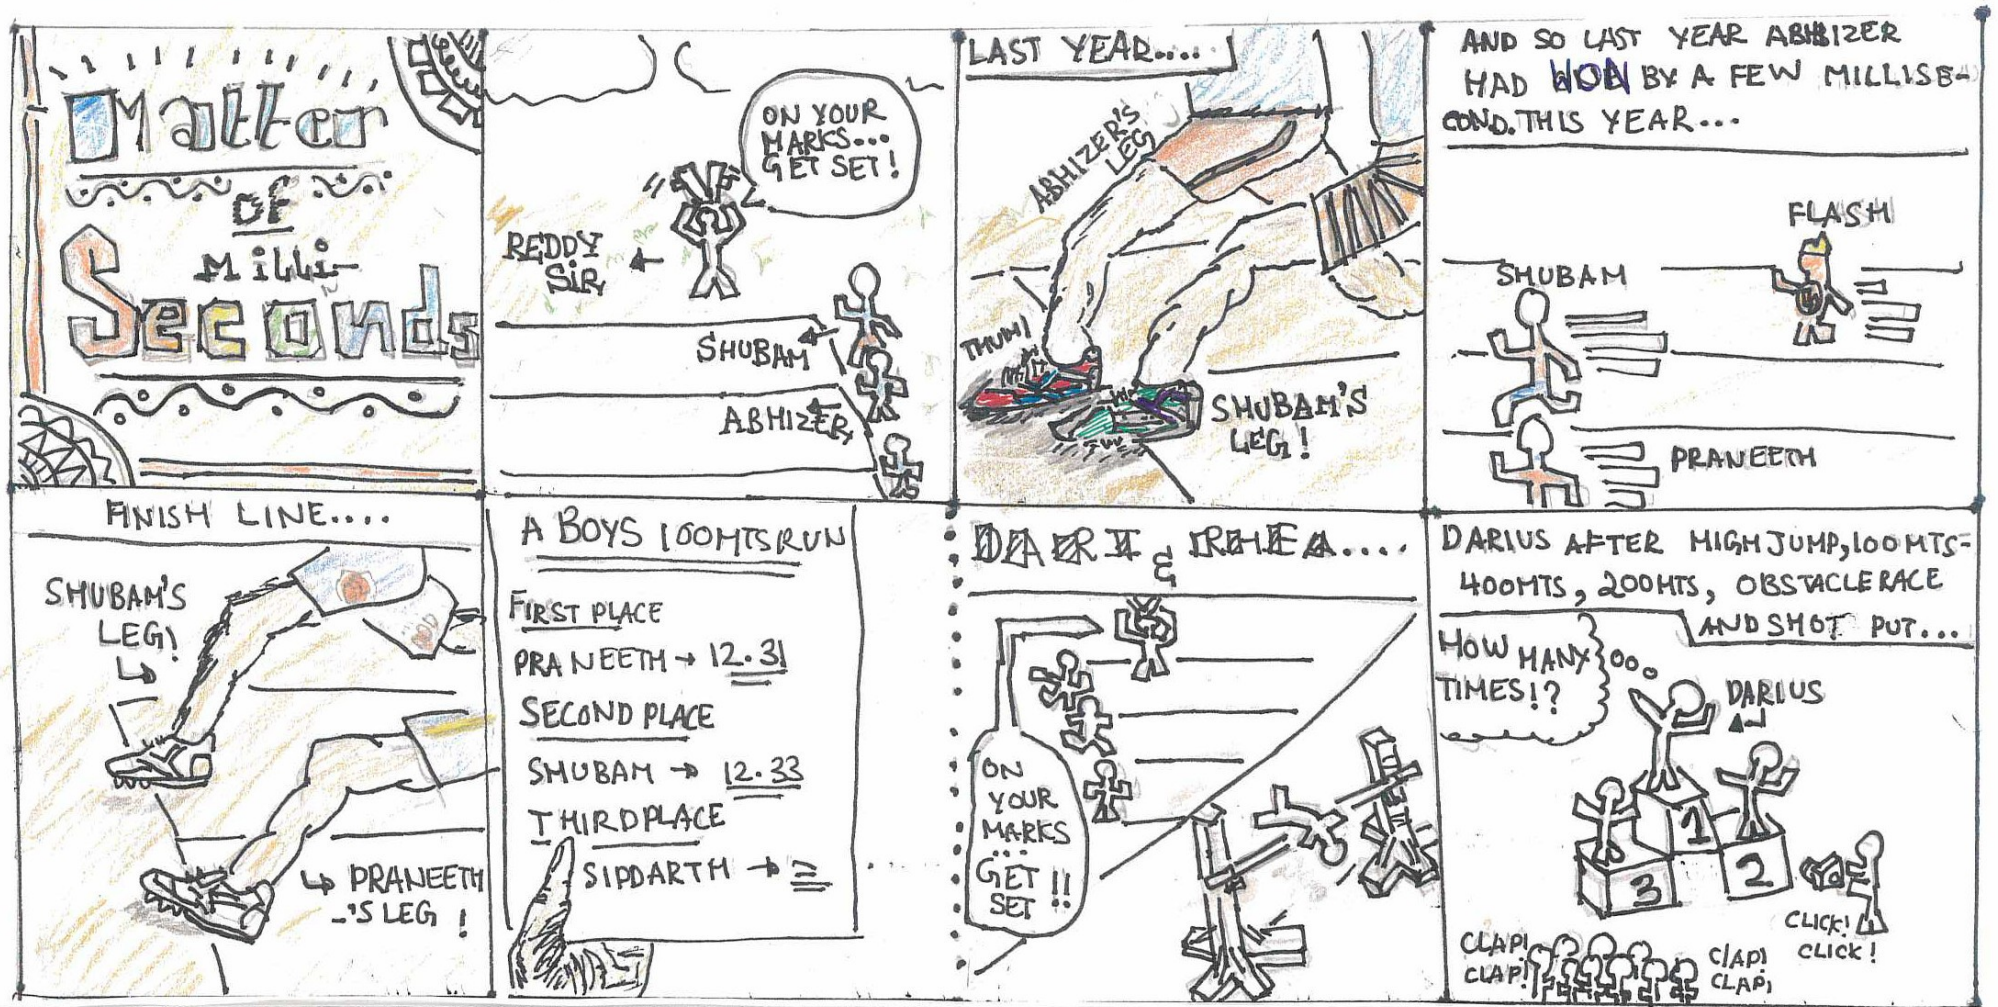 Matter
OF
Milli-
Seconds
ON YOUR
MARKS...
GET SET!
REDDY
SIR
SHUBAM
ABHIZER
LAST YEAR.....
ABHIZER'S
LEG
SHUBAM'S
LEG!
AND SO LAST YEAR ABHIZER
HAD WON BY A FEW MILLISE-
COND. THIS YEAR...
FLASH
SHUBAM
PRANEETH
FINISH LINE....
SHUBAM'S
LEG!
PRANEETH
-'S LEG !
A BOYS 100MTS RUN
FIRST PLACE
PRANEETH → 12.31
SECOND PLACE
SHUBAM → 12.33
THIRD PLACE
SIDDARTH →
&
ON
YOUR
MARKS
...
GET !!
SET
DARIUS AFTER HIGH JUMP, 100 MTS-
400MTS, 200MTS, OBSTACLE RACE
AND SHOT PUT...
HOW MANY
TIMES!?
DARIUS
1
2
3
CLICK!
CLICK!
CLAP!
CLAP!
CLAP!
CLAP!